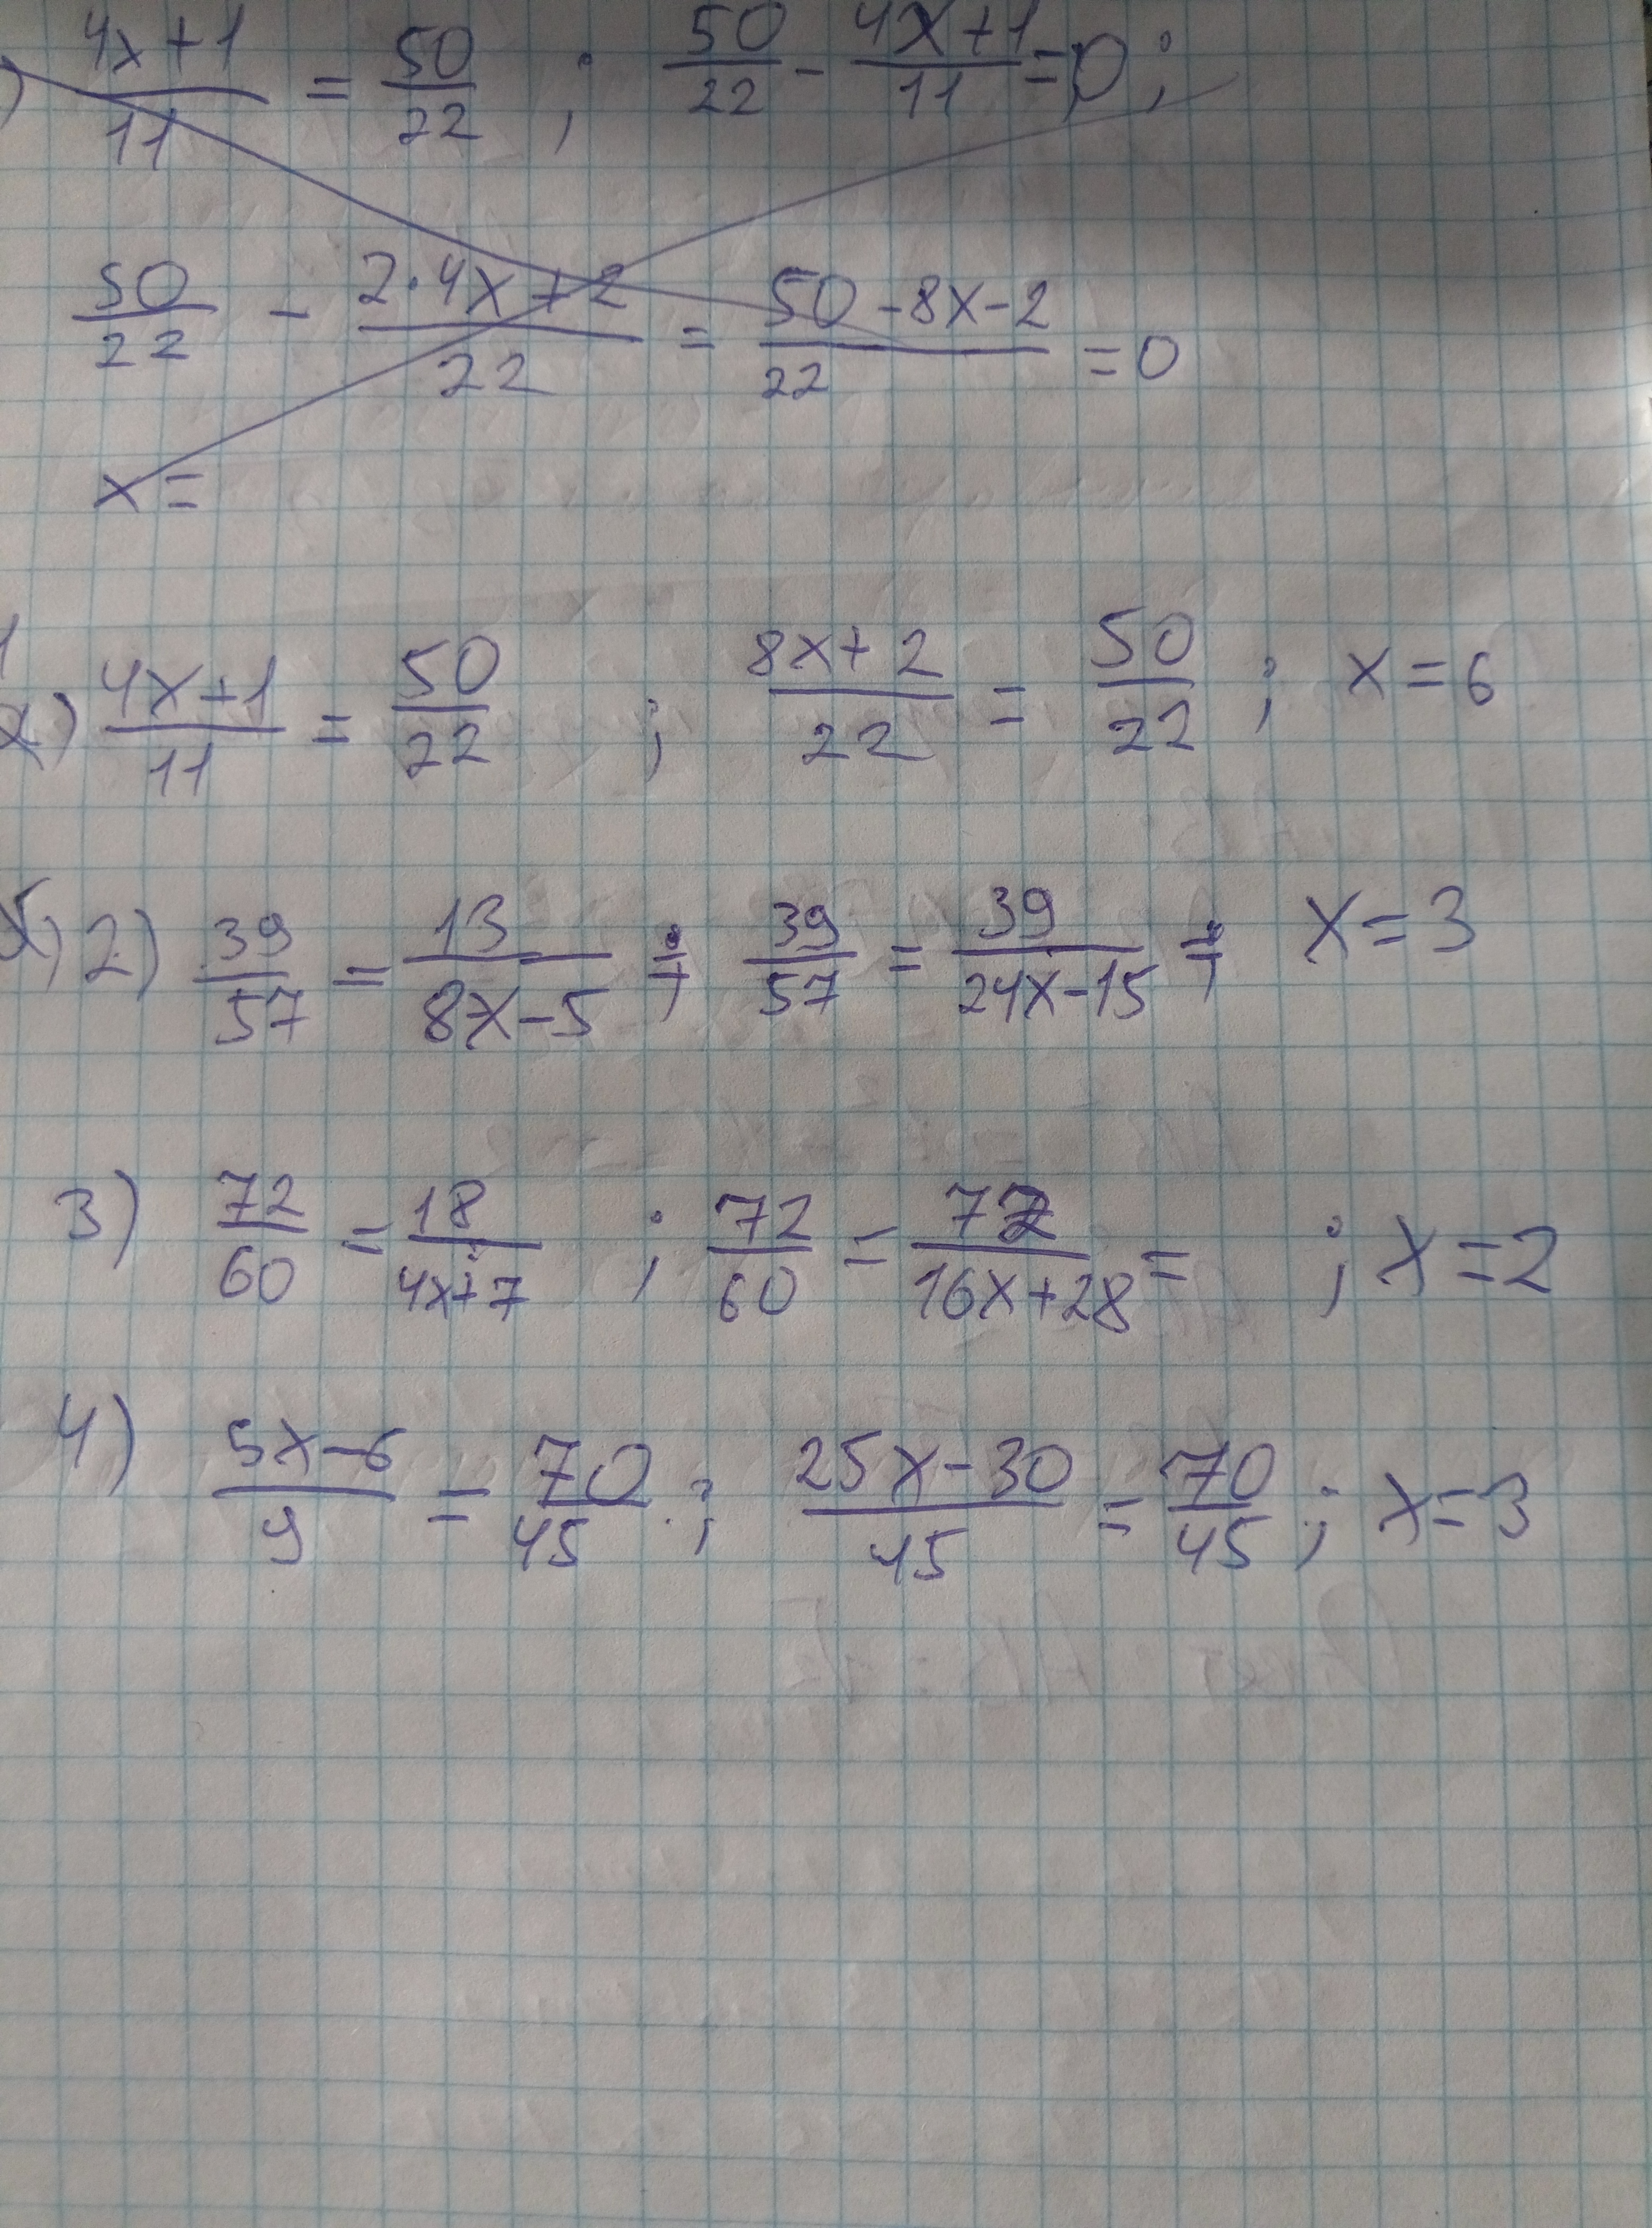 ) (4x+1)/11 = 50/22 ; 50/22 - (4x+1)/11 = 0 ;
50/22 - (2·4x+2)/22 = (50-8x-2)/22 = 0
x =
1) (4x+1)/11 = 50/22 ; (8x+2)/22 = 50/22 ; x = 6
2) 39/57 = 13/(8x-5) ; 39/57 = 39/(24x-15) ; x = 3
3) 72/60 = 18/(4x+7) ; 72/60 = 72/(16x+28) = ; x = 2
4) (5x-6)/9 = 70/45 ; (25x-30)/45 = 70/45 ; x = 3